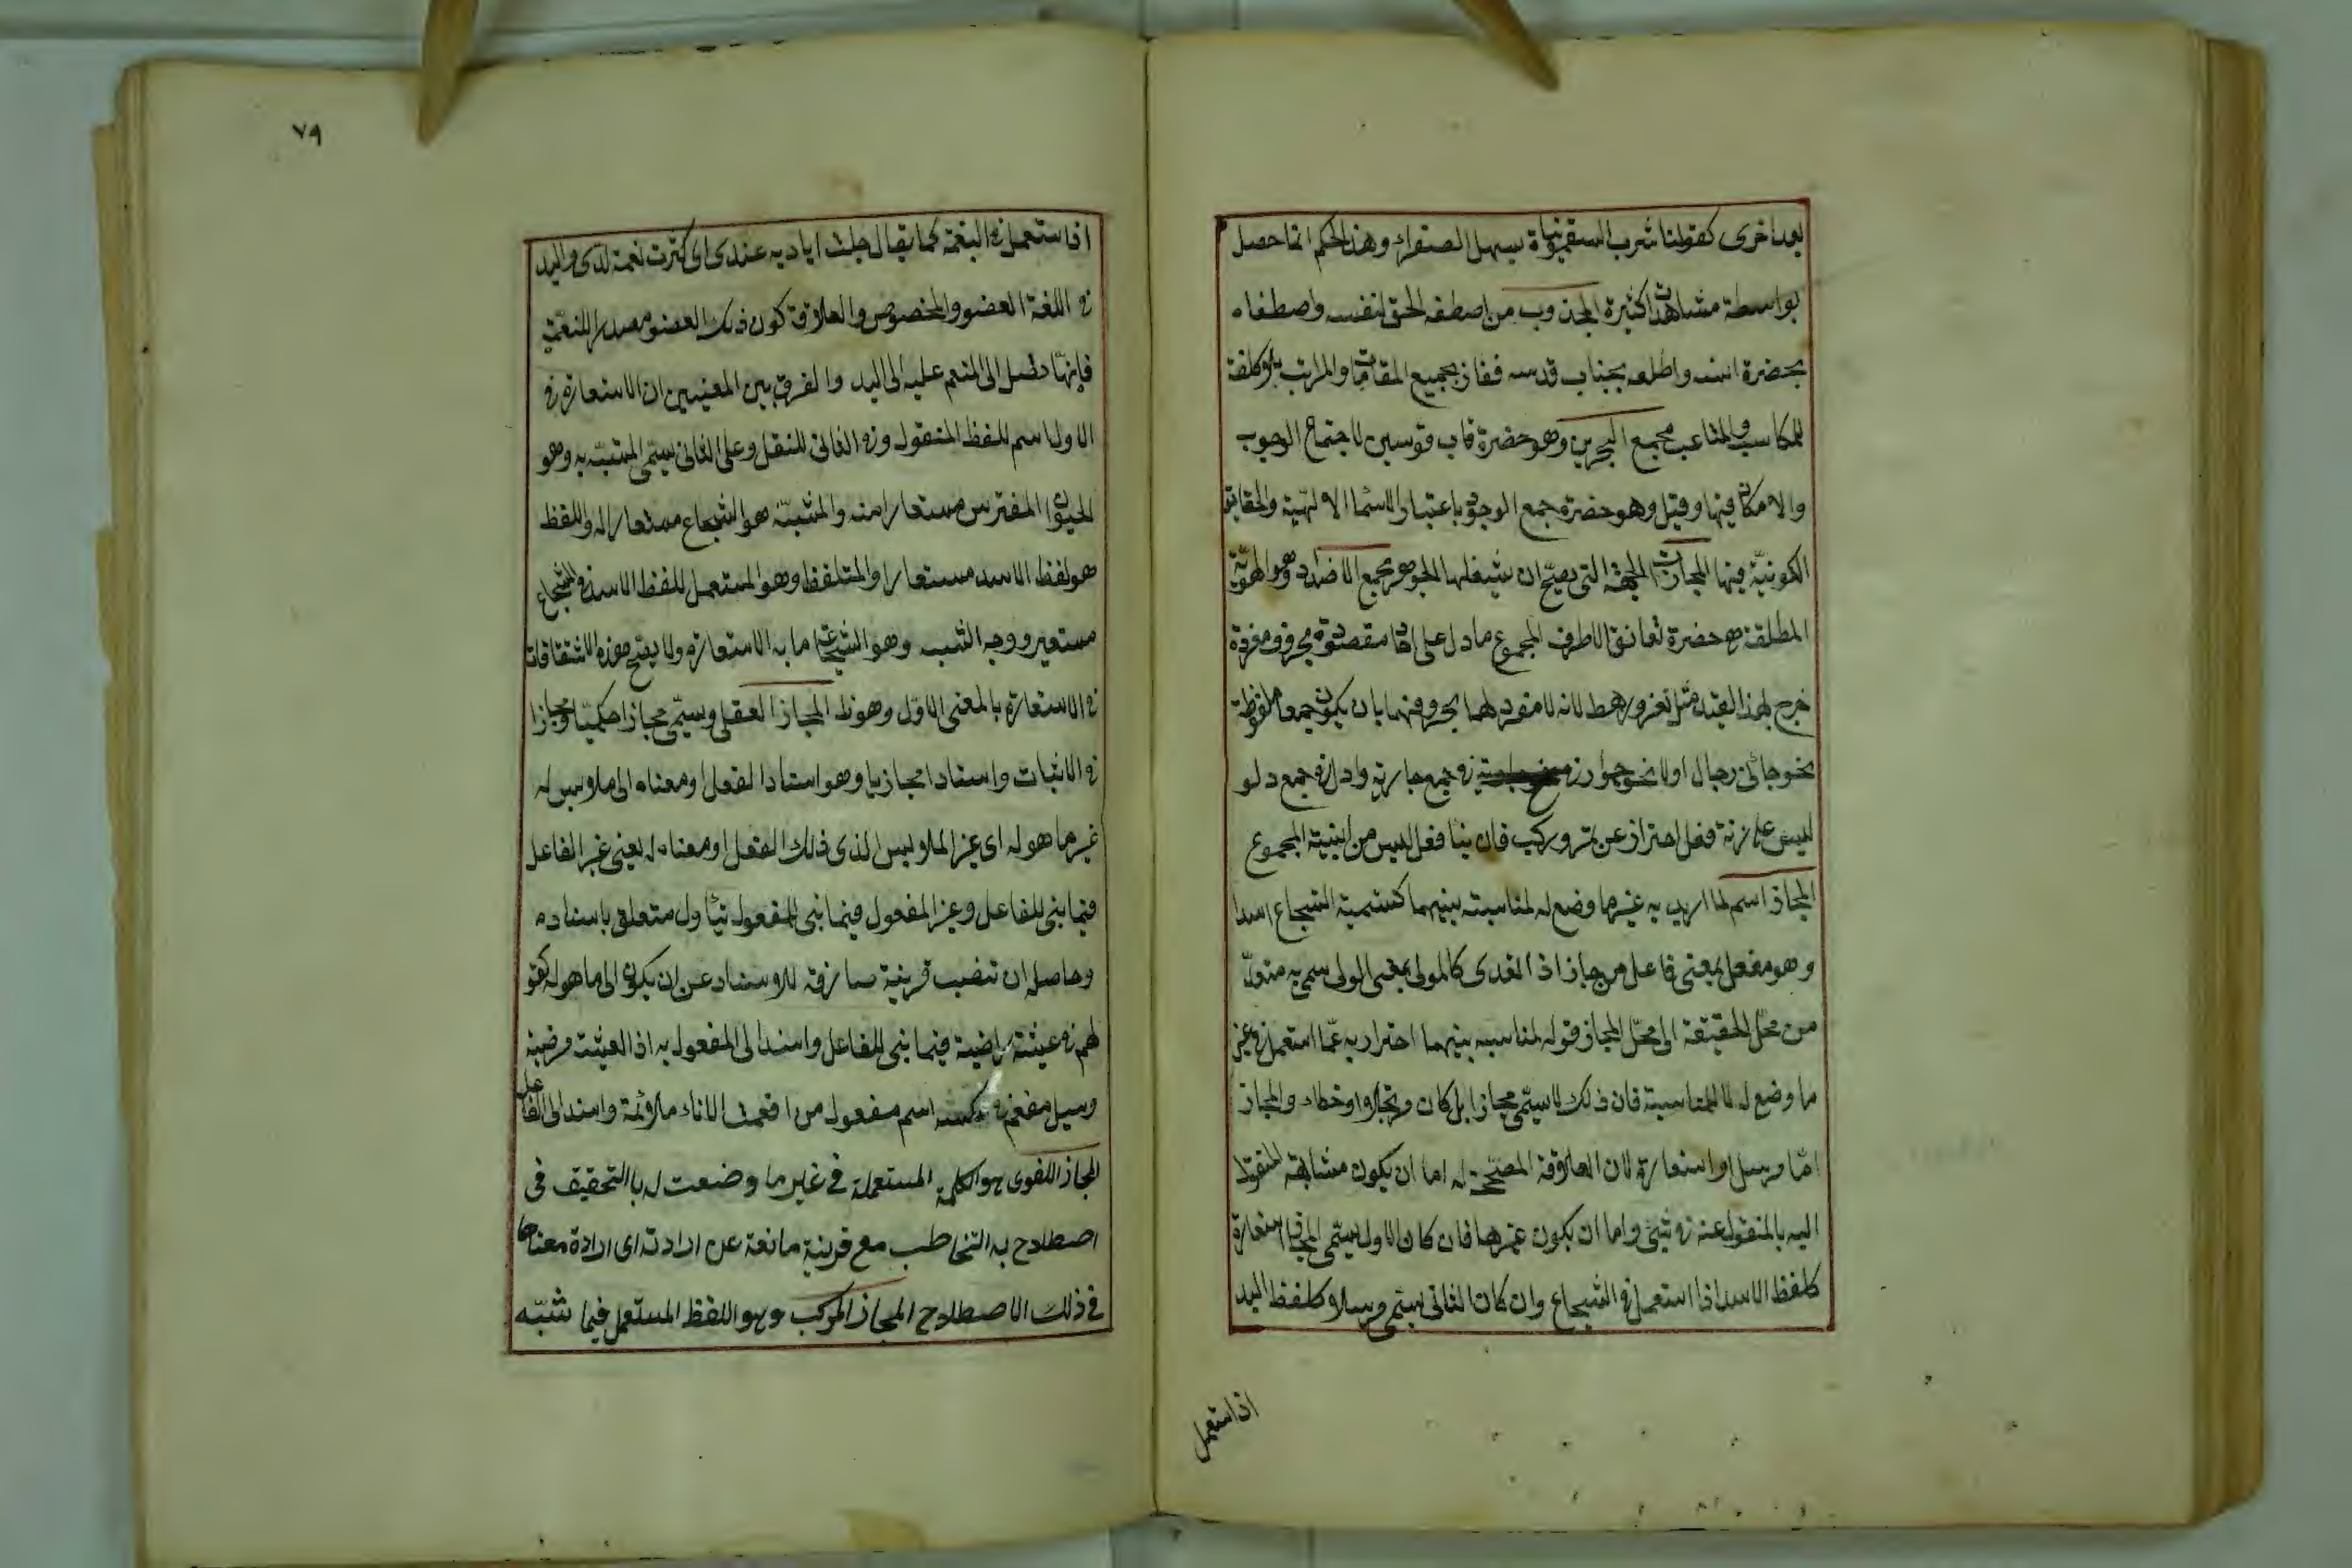 بعد اخرى كقولنا شرب السقمونيا يسهل الصفراء وهذا الحكم انما حصل
بواسطة مشاهدات كثيرة المجذوب من اصطفه الحق لنفسه واصطفاه
بحضرة انسه واطلعه بجناب قدسه ففاز بجميع المقامات والمراتب بلا كلفة
المكاسب والمتاعب مجمع البحرين وهو حضرة قاب قوسين لاجتماع الوجوب
والامكان فيها وقيل وهو حضرة جمع الوجود باعتبار الاسماء الالهية والحقايق
الكونية فيها المجازات الجهة التى يصح ان مجمع الاضداد وهو الهوية
المطلقة هى حضرة تعانق الاطراف المجموع ما دل على احاد مقصودة بحروف مفردة
خرج لهذا القيد مثل نفر ورهط لانه لا مفرد لهما بحروفهما بان يكون جميعها ملفوظة
نحو جائنى رجال اولا نحو جوار فى جمع جارية وادل فى جمع دلو
ليس على زنة فعل احتراز عن تمر وركب فان بناء فعل ليس من ابنية المجموع
المجاز اسم لما اريد به غير ما وضع له لمناسبة بينهما كتسمية الشجاع اسدا
وهو مفعل بمعنى فاعل من جاز اذا تعدى كالمولى بمعنى الولى سمى به متعد
من محل الحقيقة الى محل المجاز قوله لمناسبة بينهما احترز به عما استعمل فى غير
ما وضع له لا لمناسبة فان ذلك لا يسمى مجازا بل كان مرتجلا او خطاء والمجاز
اما مرسل او استعارة لان العلاقة المصححة له اما ان يكون مشابهة المنقول
اليه بالمنقول عنه فى شئ واما ان يكون غيرها فان كان الاول يسمى المجاز استعارة
كلفظ الاسد اذا استعمل فى الشجاع وان كان الثانى يسمى مرسلا كلفظ اليد
اذا استعمل
٧٩
اذا استعمل فى النعمة كما يقال جلت اياديه عندى اى كثرت نعمه لدى واليد
فى اللغة العضو المخصوص والعلاقة كون ذلك العضو مصدرا للنعمة
فانها تصل الى المنعم عليه الى اليد والفرق بين المعنيين ان الاستعارة فى
الاول اسم للفظ المنقول وفى الثانى للنقل وعلى الثانى يسمى المشبه به وهو
الحيوان المفترس مستعارا منه والمشبه هو الشجاع مستعارا له واللفظ
هو لفظ الاسد مستعارا والمتلفظ وهو المستعمل للفظ الاسد فى الشجاع
مستعير ووجه الشبه وهو الشجاعة ما به الاستعارة ولا يصح هذه الاشتقاقات
فى الاستعارة بالمعنى الاول وهو ظ المجاز العقلى ويسمى مجازا حكميا ومجازا
فى الاثبات واسنادا مجازيا وهو اسناد الفعل او معناه الى ملابس له
غير ما هو له اى غير الملابس الذى ذلك الفعل او معناه له يعنى غير الفاعل
فيما بنى للفاعل وغير المفعول فيما بنى للمفعول بتاول متعلق باسناده
وحاصله ان تنصب قرينة صارفة للاسناد عن ان يكون الى ما هو له كقو
لهم فى عيشة راضية فيما بنى للفاعل واسند الى المفعول به اذ العيشة مرضية
وسيل مفعم فى عكسه اسم مفعول من افعمت الاناء ملائة واسند الى الفاعل
المجاز اللغوى هو الكلمة المستعملة فى غير ما وضعت له بالتحقيق فى
اصطلاح به التخاطب مع قرينة مانعة عن ارادته اى ارادة معناها
فى ذلك الاصطلاح المجاز المركب وهو اللفظ المستعمل فيما شبه